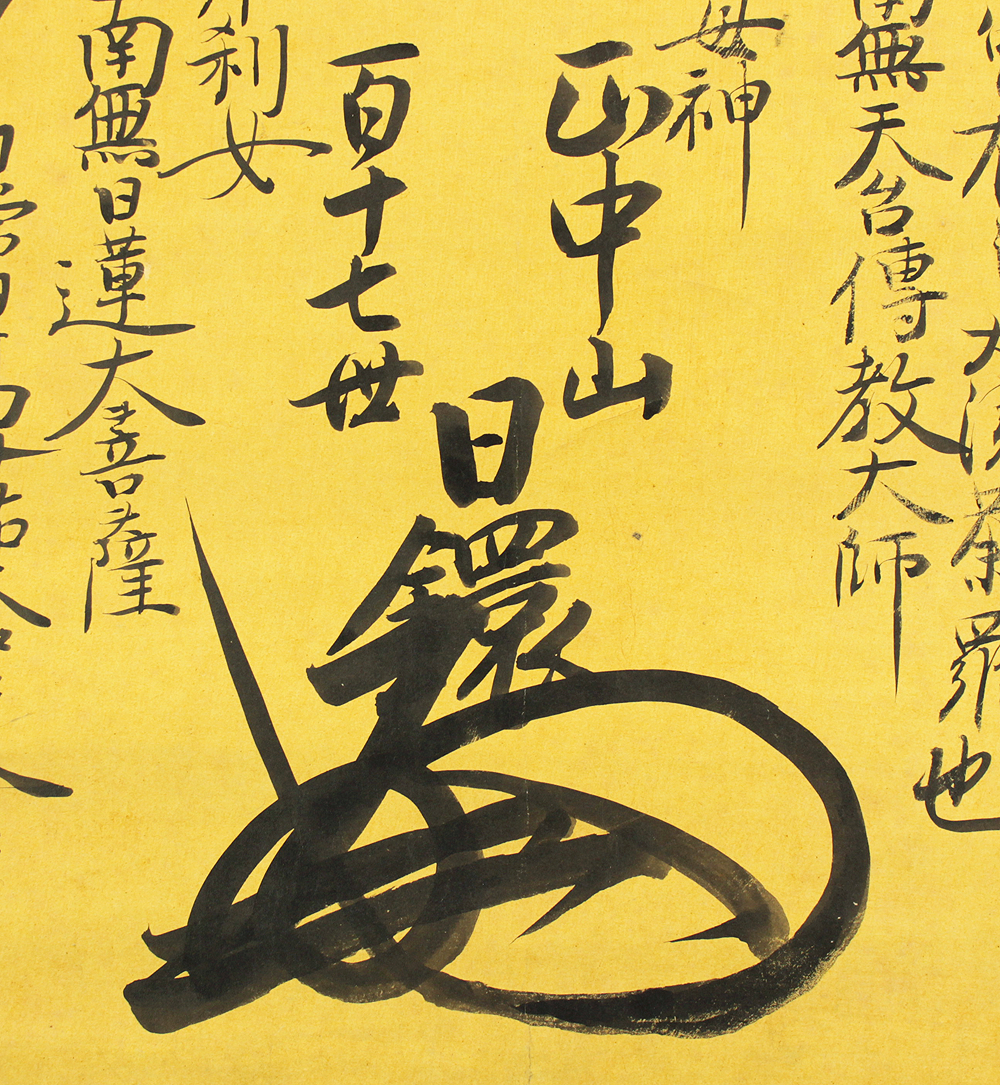 大漫荼羅也
南無天台傳教大師
母神
正中山
百十七世
日鐶
刹女
南無日蓮大菩薩